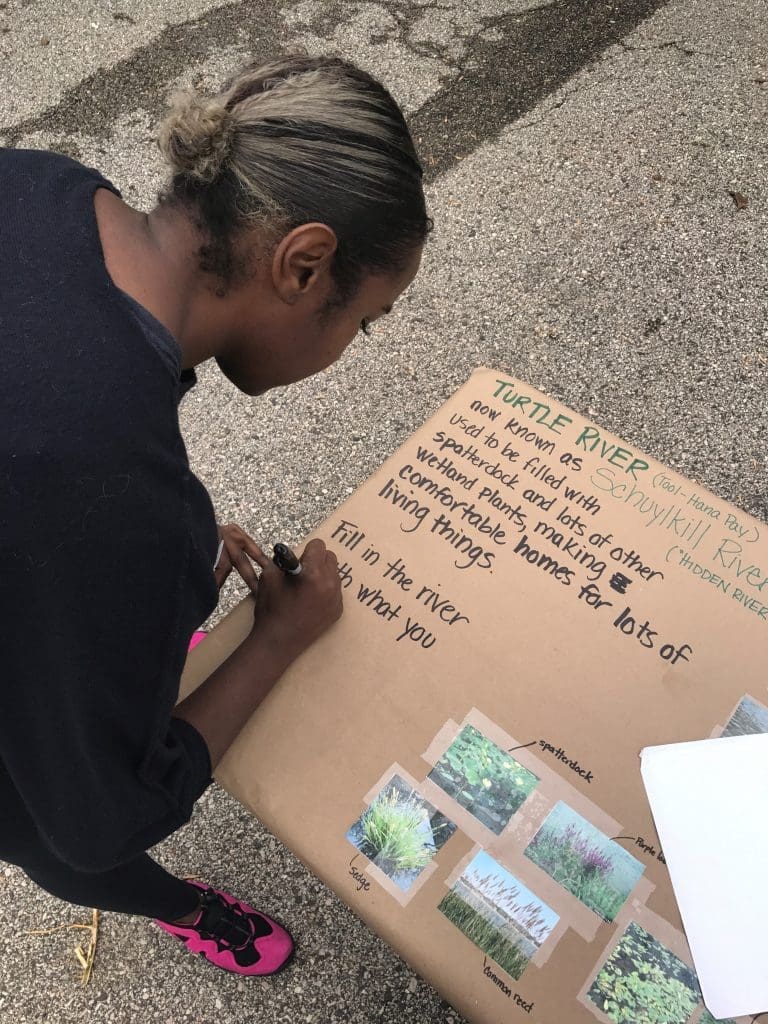 TURTLE RIVER (Tool-Hana Pay)
now known as Schuylkill River
("HIDDEN RIVER
used to be filled with
spatterdock and lots of other
wetland plants, making
comfortable homes for lots of
living things.
Fill in the river
what you
spatterdock
Purple
Sedge
Common reed